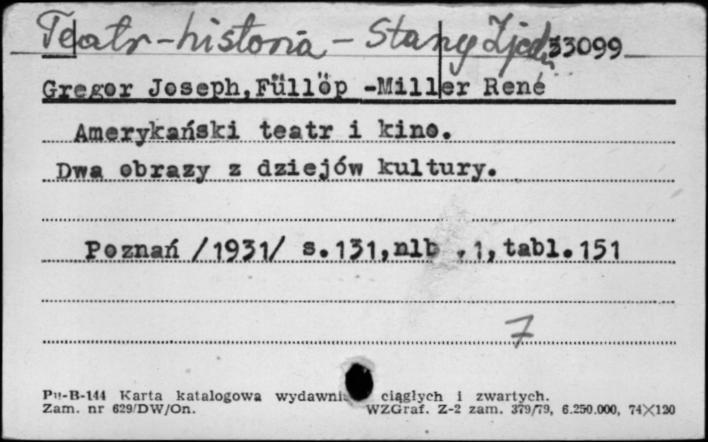 Teatr-historia - Stany Zjedn 33099
Gregor Joseph,Füllöp -Miller René
Amerykański teatr i kino.
Dwa obrazy z dziejów kultury.
Poznań /1931/ s.131,nlb .1,tabl.151
7
Pu-B-144 Karta katalogowa ciągłych i zwartych.
Zam. nr 629/DW/On. WZGraf. Z-2 zam. 379/79, 6.250.000, 74×120